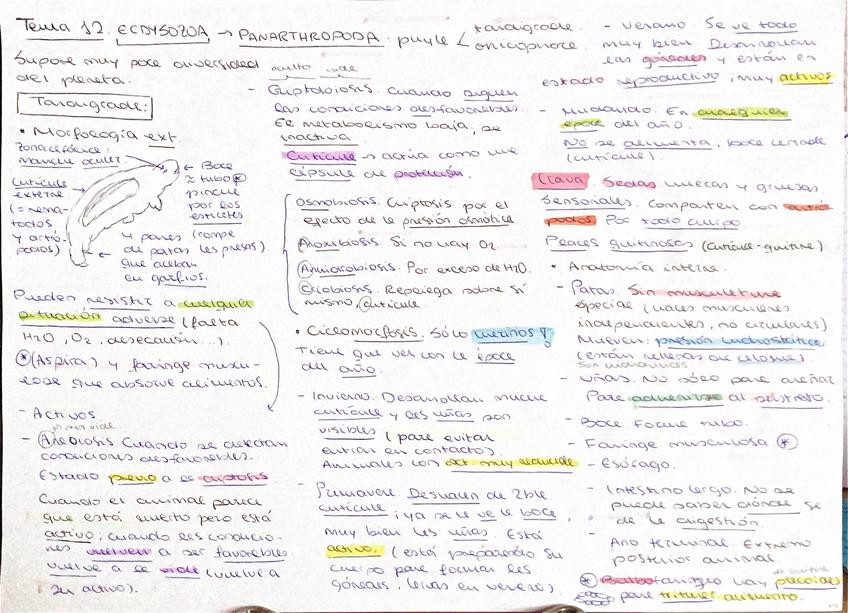 Tema 12. ECDYSOZOA → PANARTHROPODA: phyla < tardigrada
onicophora
Supone muy poca diversidad
del planeta.
Tardigrada:
• Morfología ext.
zona cefálica:
mancha ocular
← Boca
≈ tubo *
pincha
por los
estiletes
(rompe
las presas)
Cutícula
externa
(= nema-
todos
y artró-
podos)
4 pares
← de patas
que acaban
en garfios.
Pueden resistir a cualquier
situación adversa (falta
H2O, O2, desecación...).
* (Aspira) y faringe muscu-
losa que absorve alimentos.
- Activos
sin vida
- Anabiosis Cuando se detectan
condiciones desfavorables.
Estado previo a la criptosis
Cuando el animal parece
que está muerto pero está
activo; cuando las condicio-
nes vuelven a ser favorables
vuelve a la vida (vuelve a
ser activo).
oculto vida
- Criptobiosis. Cuando siguen
las condiciones desfavorables
El metabolismo baja, se
inactiva
Cutícula → actúa como una
cápsula de protección.
Osmobiosis. Criptosis por el
efecto de la presión osmótica
Anoxibiosis. Si no hay O2.
Anhidrobiosis. Por exceso de H2O.
Ciclobiosis. Repliega sobre sí
mismo, cutícula.
• Ciclomorfosis. Sólo marinos!
Tiene que ver con la época
del año.
- Invierno. Desarrollan nueva
cutícula y las uñas son
visibles (para evitar
entrar en contacto).
Animales con act. muy reducida
- Primavera Desarrollan de 2ble
cutícula; ya se le ve la boca,
muy bien las uñas. Está
activo. (está preparando su
cuerpo para formar las
gónadas, llenas en verano).
- Verano. Se ve todo
muy bien Desarrollan
las gónadas y están en
estado reproductivo, muy activos
- Mudando. En cualquier
época del año.
No se alimenta, boca cerrada
(cutícula).
Clava. Sedas huecas y gruesas.
Sensoriales. Comparten con artró-
podos Por todo cuerpo
Placas quitinosas (cutícula-quitina)
• Anatomía interna.
- Patas. Sin musculatura
especial (haces musculares
independientes, no circulares)
Mueven: presión hidrostática
(están rellenas de celoma).
- Uñas. No sólo para arañar
Para adherirse al sustrato.
- Boca Forma tubo.
- Faringe musculosa *
- Esófago.
- Intestino largo. No se
puede saber dónde se
da la digestión.
- Ano terminal. Extremo
posterior animal
* Bulbo faríngeo hay placoides
de quitina
para triturar alimento.